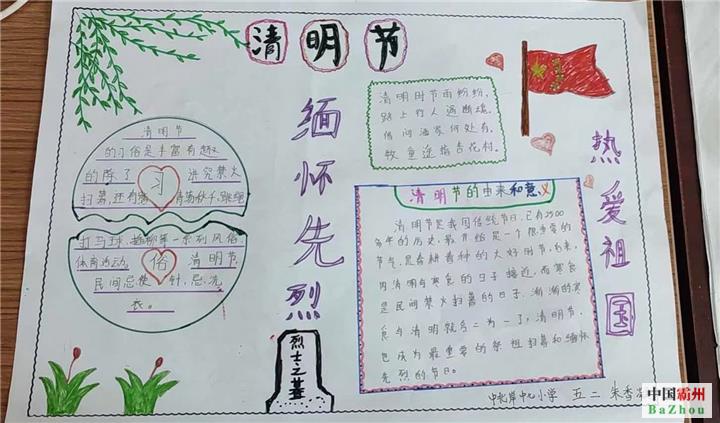 清明节
缅怀先烈
热爱祖国
清明时节雨纷纷,
路上行人
借问酒家何处有,
牧童遥指杏花村。
清明节
的习俗是丰富有趣
的除了 讲究禁火
扫墓,还有 荡秋千,踢
习
打马球 等一系列风俗
体育活动 清明节
民间忌使 针,忌洗
衣。
俗
清明节的由来和意义
清明节是我国传统节日,已有2500
多年的历史,最开始是一个很重要的
节气,是春耕春种的大好时节,后来,
因清明与寒食的日子接近,而寒食
是民间禁火扫墓的日子,渐渐的寒
食与清明就合二为一了,清明节
也成为最重要的祭祖扫墓和缅怀
先烈的节日。
烈士之墓
小学 五二 朱
中国霸州
BaZhou